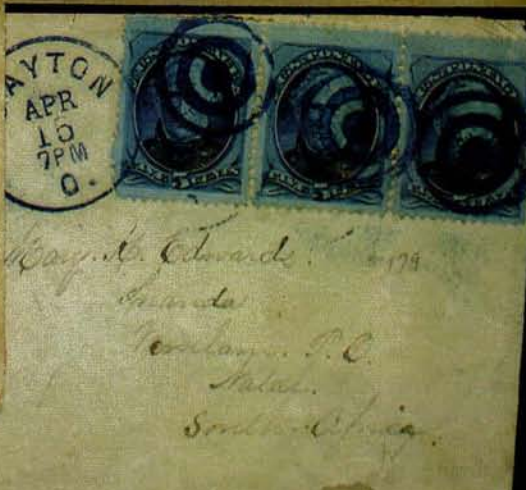 AYTON
APR
15
7PM
O.
Mary K. Edwards.
Inanda
Verulam. P.O.
Natal.
Southern Africa.